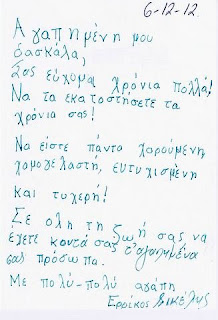 6-12-12
Αγαπημένη μου
δασκάλα,
Σας εύχομαι χρόνια πολλά!
Να τα εκατοστήσετε τα
χρόνια σας!
Να είστε πάντα χαρούμενη,
χαμογελαστή, ευτυχισμένη
και τυχερή!
Σε όλη τη ζωή σας να
έχετε κοντά σας τ'αγαπημένα
σας πρόσωπα.
Με πολύ-πολύ αγάπη
Ερρίκος